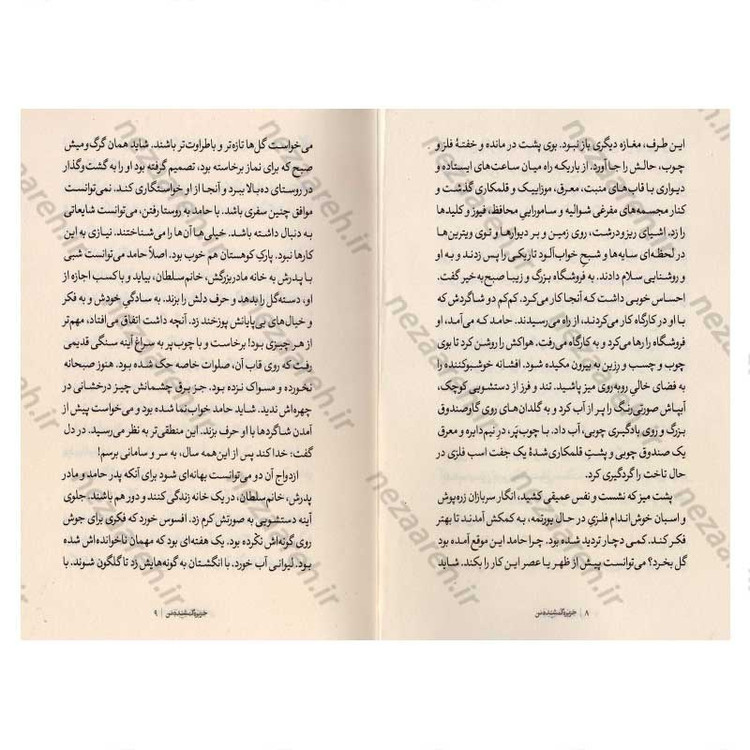 این طرف، مغازه دیگری باز نبود. بوی پشت در مانده و خفتهٔ فلز و
چوب، حالش را جا آورد. از باریکه راه میان ساعت‌های ایستاده و
دیواری با قاب‌های منبت، معرق، موزاییک و قلمکاری گذشت و
کنار مجسمه‌های مفرغی شوالیه و سامورایی محافظ، فیوز و کلیدها
را زد. اشیای ریز و درشت، روی زمین و بر دیوارها و توی ویترین‌ها
در لحظه‌ای سایه‌ها و شبح خواب‌آلود تاریکی را پس زدند و به او
و روشنایی سلام دادند. به فروشگاه بزرگ و زیبا صبح‌به‌خیر گفت.
احساس خوبی داشت که آنجا کار می‌کرد. کم‌کم دو شاگردش که
با او در کارگاه کار می‌کردند، از راه می‌رسیدند. حامد که می‌آمد، او
فروشگاه را رها می‌کرد و به کارگاه می‌رفت. هواکش را روشن کرد تا بوی
چوب و چسب و رزین به بیرون مکیده شود. افشانه خوشبوکننده را
به فضای خالیِ روبه‌روی میز پاشید. تند و فرز از دستشویی کوچک،
آبپاش صورتی‌رنگ را پر از آب کرد و به گلدان‌های روی گاوصندوق
بزرگ و روی یادگیری چوبی، آب داد. با چوب‌پَر، در نیم‌دایره و معرق
یک صندوق چوبی و پشتِ قلمکاری‌شدهٔ یک جفت اسب فلزی در
حال تاخت را گردگیری کرد.
پشت میز که نشست و نفس عمیقی کشید، انگار سربازان زره‌پوش
و اسبان خوش‌اندام فلزیِ در حال یورتمه، به کمکش آمدند تا بهتر
فکر کند. کمی دچار تردید شده بود. چرا حامد این موقع آمده بود
گل بخرد؟ می‌توانست پیش از ظهر یا عصر این کار را بکند. شاید
۸ | جزیره گمشده من
می‌خواست گل‌ها تازه‌تر و باطراوت‌تر باشند. شاید همان گرگ‌ومیش
صبح که برای نماز برخاسته بود، تصمیم گرفته بود او را به گشت‌وگذار
در روستای ده‌بالا ببرد و آنجا از او خواستگاری کند. نمی‌توانست
موافق چنین سفری باشد. با حامد به روستا رفتن، می‌توانست شایعاتی
به دنبال داشته باشد. خیلی‌ها آن‌ها را می‌شناختند. نیازی به این
کارها نبود. پارک کوهستان هم خوب بود. اصلاً حامد می‌توانست شبی
با پدرش به خانه مادربزرگش، خانم‌سلطان، بیاید و با کسب اجازه از
او، دسته‌گل را بدهد و حرف دلش را بزند. به سادگیِ خودش و به فکر
و خیال‌های بی‌پایانش پوزخند زد. آنچه داشت اتفاق می‌افتاد، مهم‌تر
از هر چیزی بود! برخاست و با چوب‌پر به سراغ آینه سنگی قدیمی
رفت که روی قاب آن، صلوات خاصه حک شده بود. هنوز صبحانه
نخورده و مسواک نزده بود. جز برق چشمانش چیز درخشانی در
چهره‌اش ندید. شاید حامد خواب‌نما شده بود و می‌خواست پیش از
آمدن شاگردها با او حرف بزند. این منطقی‌تر به نظر می‌رسید. در دل
گفت: خدا کند پس از این‌همه سال، به سر و سامانی برسم!
ازدواج آن دو می‌توانست بهانه‌ای شود برای آنکه پدر حامد و مادرِ
پدرش، خانم‌سلطان، در یک خانه زندگی کنند و دور هم باشند. جلوی
آینه دستشویی به صورتش کرم زد. افسوس خورد که فکری برای جوش
روی گونه‌اش نکرده بود. یک هفته‌ای بود که مهمان ناخوانده‌اش شده
بود. لیوانی آب خورد. با انگشتان به گونه‌هایش زد تا گلگون شوند. با
جزیره گمشده من | ۹
nezaareh.ir